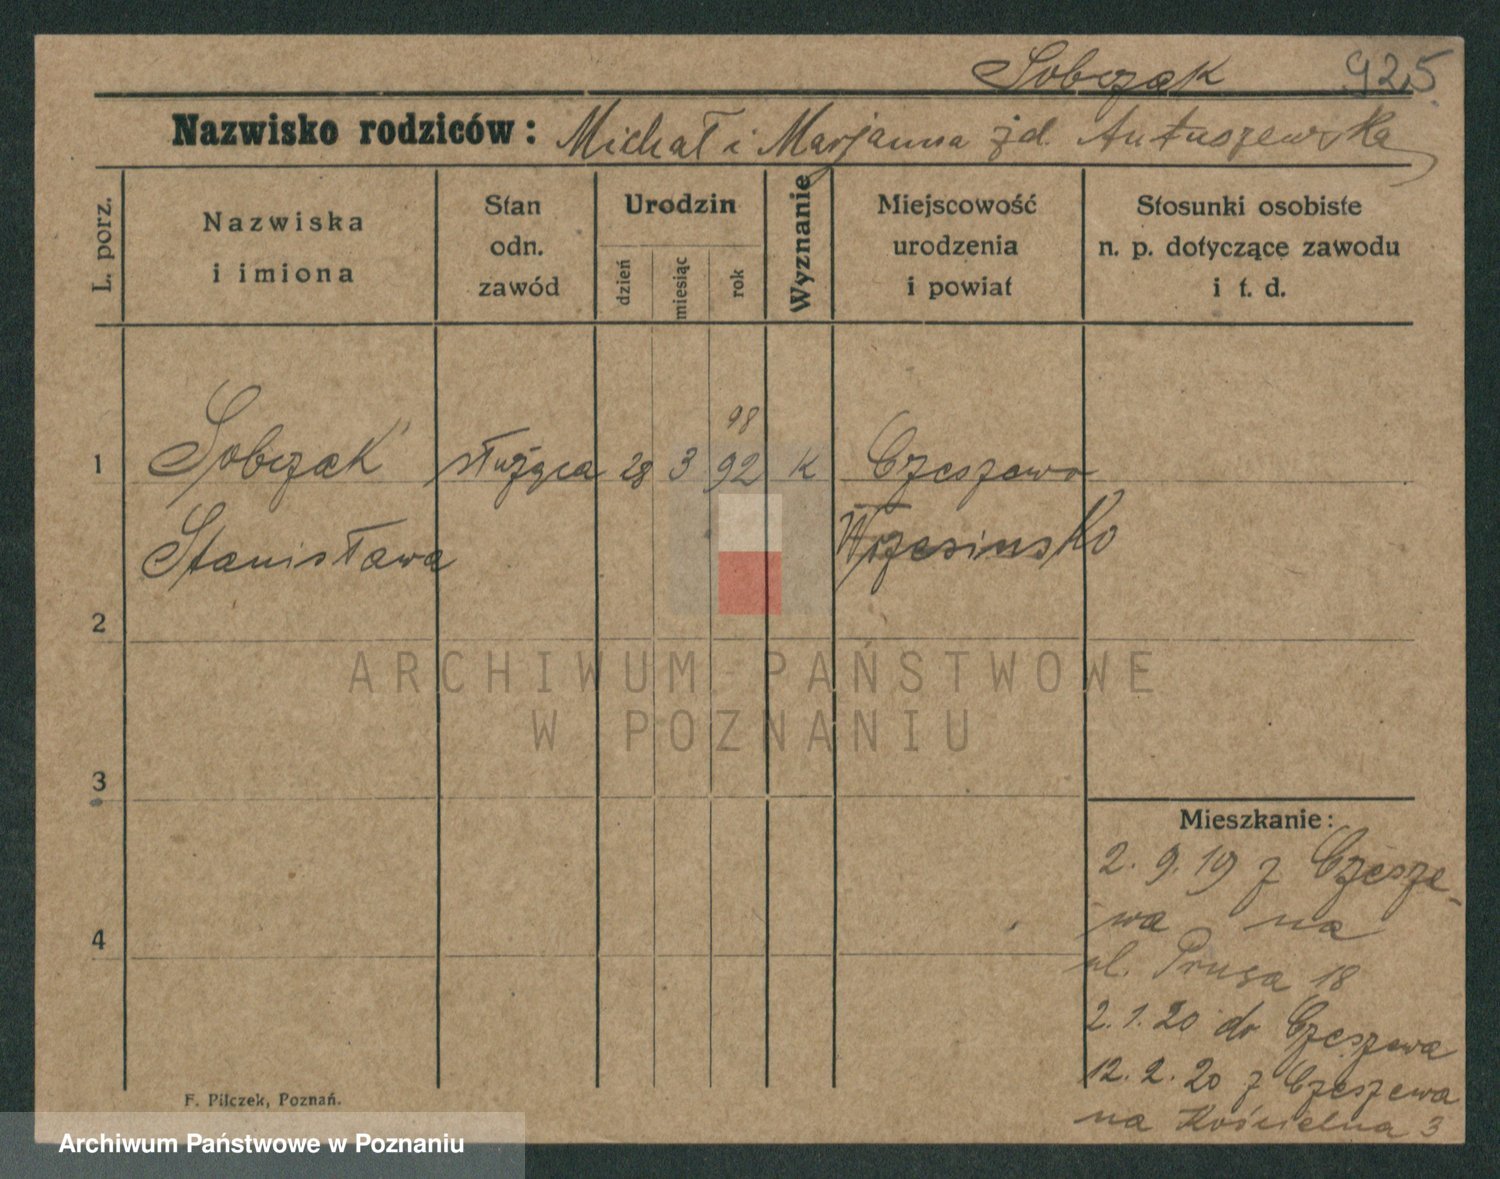 Sobczak 925
Nazwisko rodziców: Michał i Marjanna żd. Antuszewska
L. porz.
Nazwiska
i imiona
Stan
odn.
zawód
Urodzin
dzień
miesiąc
rok
Wyznanie
Miejscowość
urodzenia
i powiat
Stosunki osobiste
n. p. dotyczące zawodu
i t. d.
98
1 Sobczak służąca 28 3 92 K Czeszewo
Stanisława Wrzesinsko
2
ARCHIWUM PAŃSTWOWE
W POZNANIU
3
Mieszkanie:
2. 9. 19 z Czesze-
wa na
ul. Prusa 18
4
2. 1. 20 do Czeszewa
12. 2. 20 z Czeszewa
na Kościelna 3
F. Pilczek, Poznań.
Archiwum Państwowe w Poznaniu